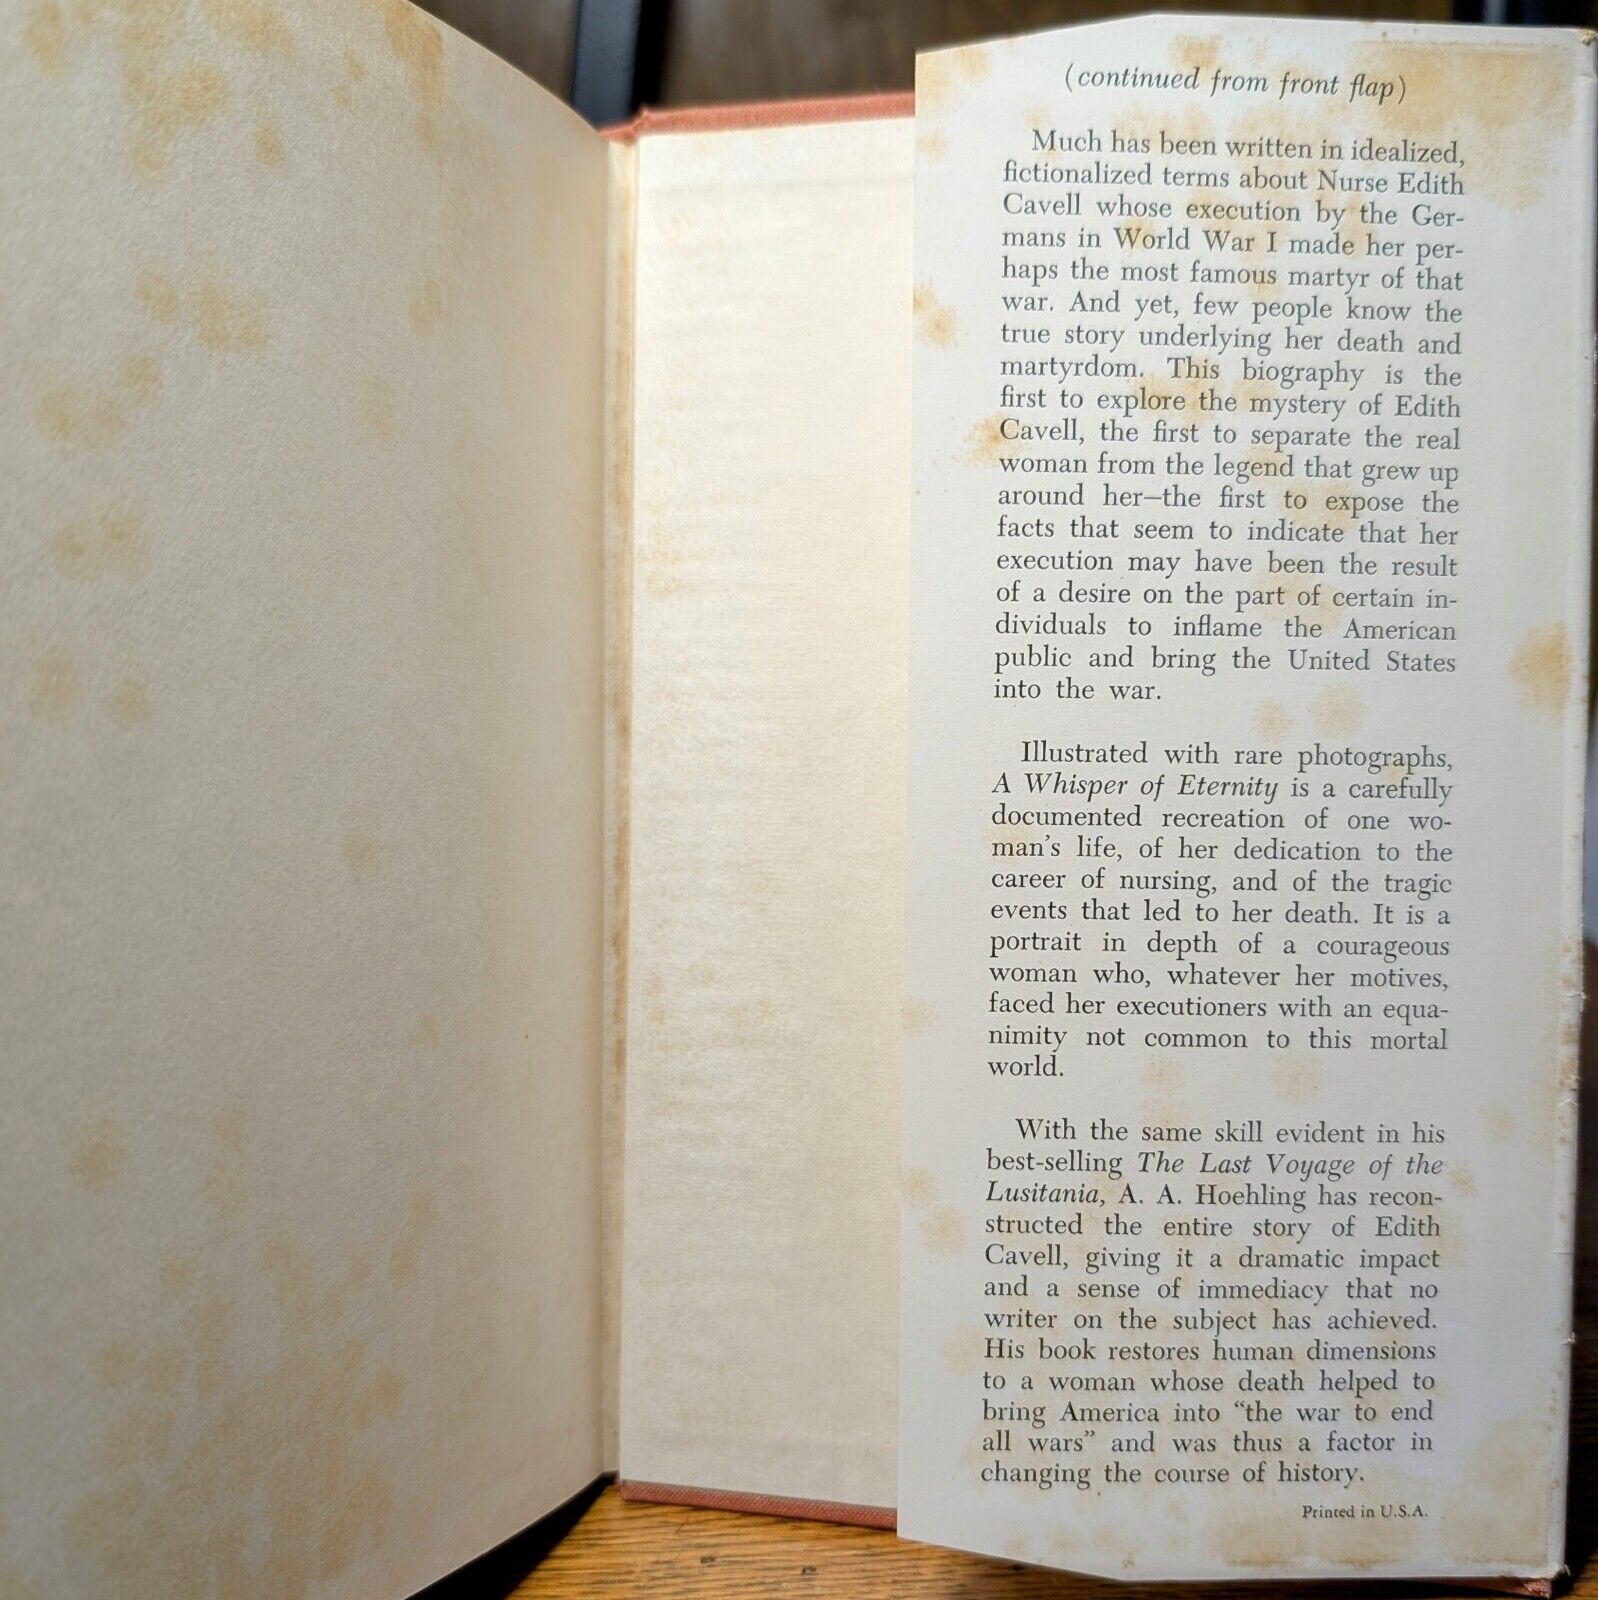 (continued from front flap)
Much has been written in idealized,
fictionalized terms about Nurse Edith
Cavell whose execution by the Ger-
mans in World War I made her per-
haps the most famous martyr of that
war. And yet, few people know the
true story underlying her death and
martyrdom. This biography is the
first to explore the mystery of Edith
Cavell, the first to separate the real
woman from the legend that grew up
around her—the first to expose the
facts that seem to indicate that her
execution may have been the result
of a desire on the part of certain in-
dividuals to inflame the American
public and bring the United States
into the war.
Illustrated with rare photographs,
A Whisper of Eternity is a carefully
documented recreation of one wo-
man's life, of her dedication to the
career of nursing, and of the tragic
events that led to her death. It is a
portrait in depth of a courageous
woman who, whatever her motives,
faced her executioners with an equa-
nimity not common to this mortal
world.
With the same skill evident in his
best-selling The Last Voyage of the
Lusitania, A. A. Hoehling has recon-
structed the entire story of Edith
Cavell, giving it a dramatic impact
and a sense of immediacy that no
writer on the subject has achieved.
His book restores human dimensions
to a woman whose death helped to
bring America into “the war to end
all wars” and was thus a factor in
changing the course of history.
Printed in U.S.A.